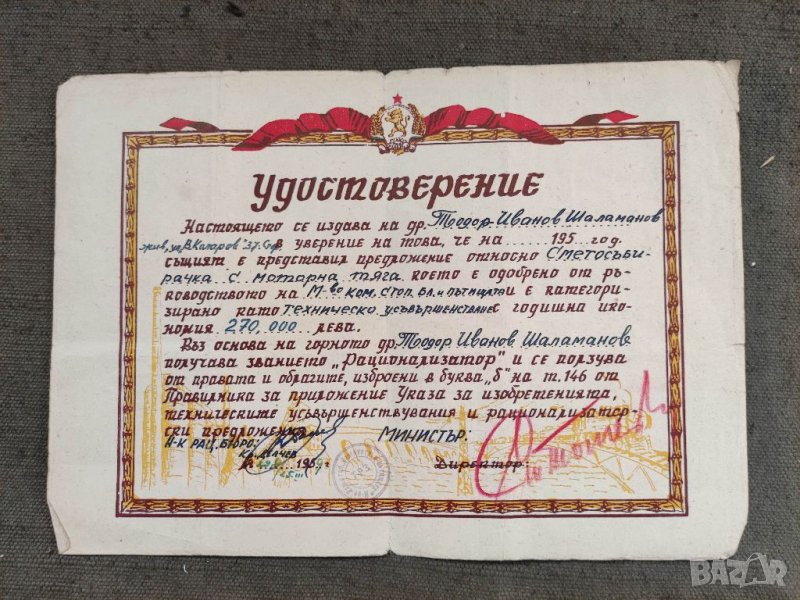 Удостоверение
Настоящето се издава на др. Тодор Иванов Шаламанов
жив. ул. В. Коларов 37. Соф. в уверение на това, че на ...... 195... год.
същият е представил предложение относно Сметосъби-
рачка с моторна тяга което е одобрено от ръ-
ководството на М-во Ком. стоп. бл. и пътищата и е категори-
зирано като техническо усъвършенстване с годишна ико-
номия 270,000 лева.
Въз основа на горното др. Тодор Иванов Шаламанов
получава званието „Рационализатор" и се ползува
от правата и облагите, изброени в буква „б" на т. 146 от
Правилника за приложение Указа за изобретенията,
техническите усъвършенствувания и рационализатор-
ски предложения.
Н-К РАЦ. БЮРО: МИНИСТЪР:
Директор:
BAZAR